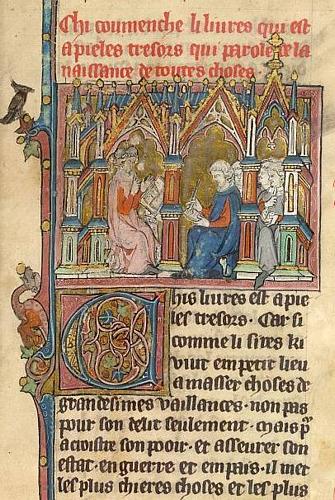 Chi coumenche li liures qui est
apieles tresors qui parole de la
naissance de toutes choses
Chis liures est apie
les tresors · Car si
comme li sires ki
viut em petit lieu
amasser choses de
grandesimes vaillances · non pas
pour son delit seulement · mais pꝰ
acroistre son pooir · et asseurer son
estat · en guerre et em pais · il met
les plus chieres choses et les plus